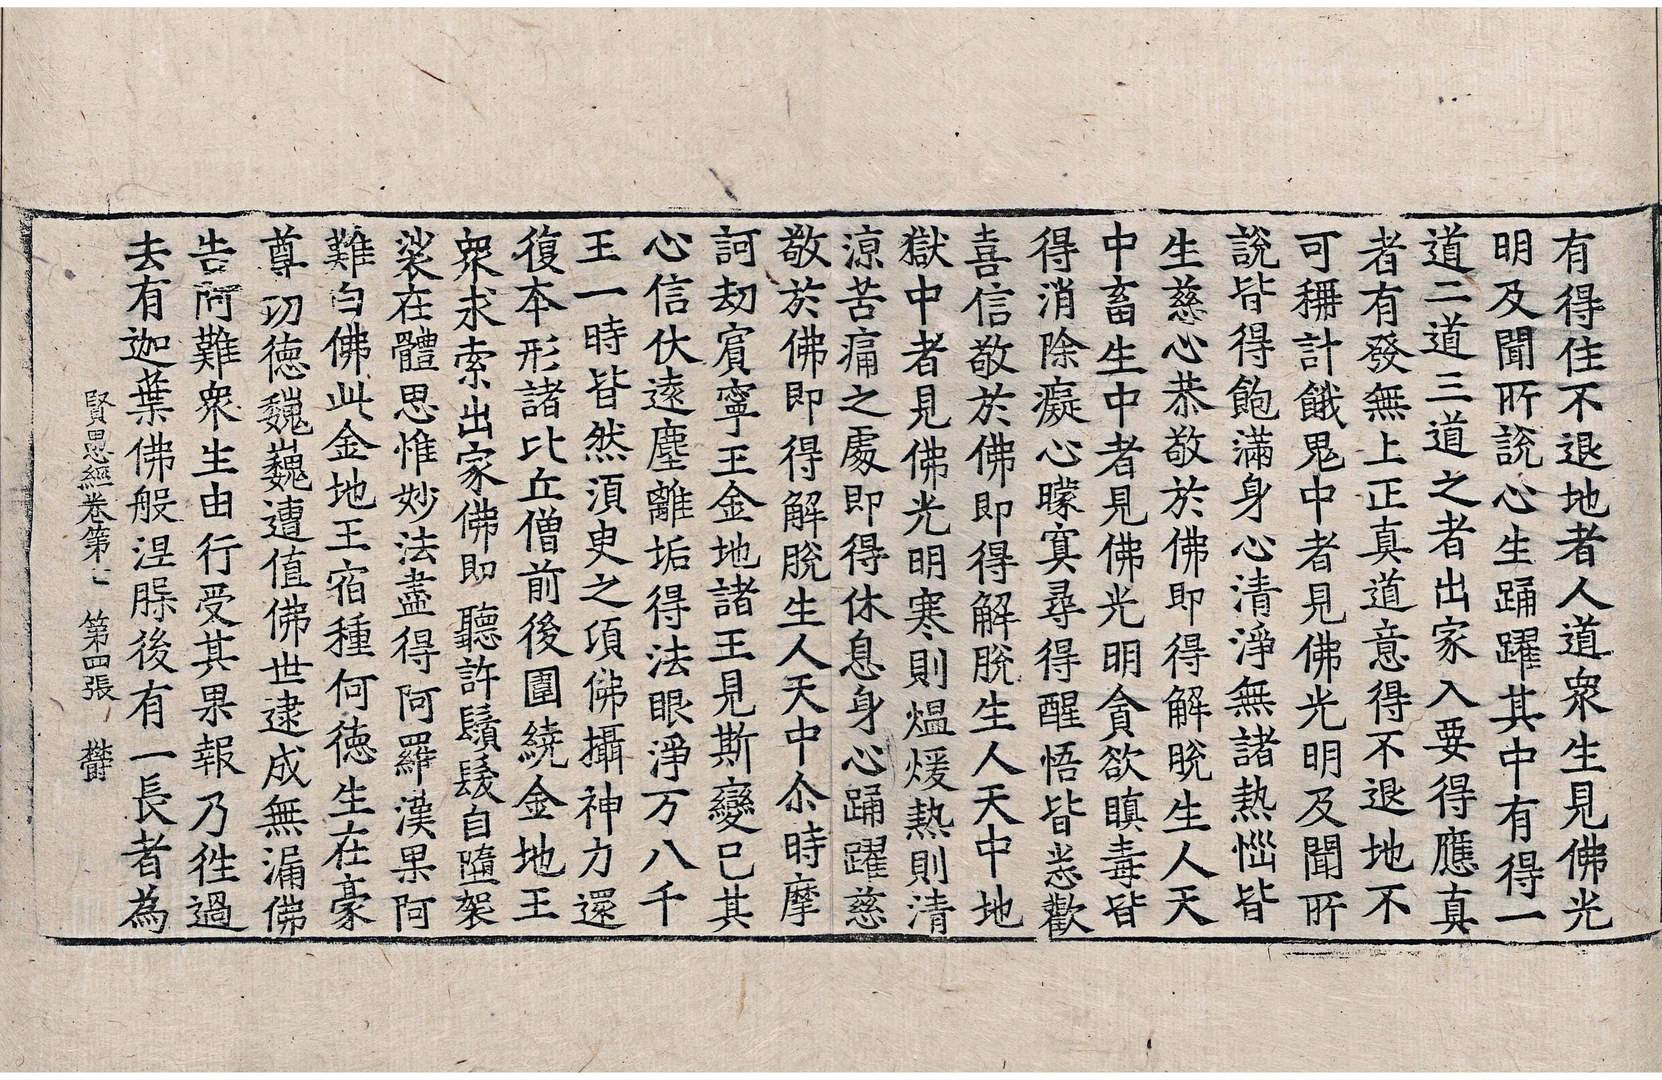 有得住不退地者人道衆生見佛光
明及聞所說心生踊躍其中有得一
道二道三道之者出家入要得應真
者有發無上正真道意得不退地不
可稱計餓鬼中者見佛光明及聞所
說皆得飽滿身心清淨無諸熱惱皆
生慈心恭敬於佛即得解脫生人天
中畜生中者見佛光明貪欲瞋毒皆
得消除癡心曚寞尋得醒悟皆悉歡
喜信敬於佛即得解脫生人天中地
獄中者見佛光明寒則熅煖熱則清
涼苦痛之處即得休息身心踊躍慈
敬於佛即得解脫生人天中尒時摩
訶劫賓寧王金地諸王見斯變已其
心信伏遠塵離垢得法眼淨万八千
王一時皆然湏臾之項佛攝神力還
復本形諸比丘僧前後圍繞金地王
衆求索出家佛即聽許鬚髮自墮袈
裟在體思惟妙法盡得阿羅漢果阿
難白佛此金地王宿種何徳生在豪
尊功徳巍巍遭值佛世逮成無漏佛
告阿難衆生由行受其果報乃徃過
去有迦葉佛般涅槃後有一長者為
賢愚經卷第七 第四張 欝